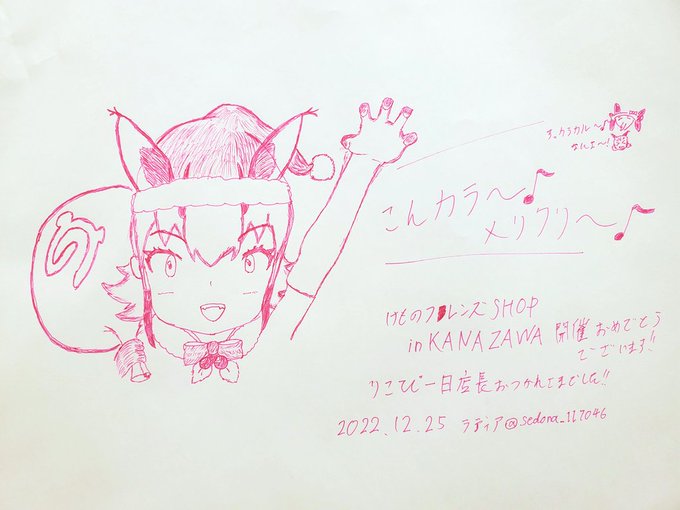 す、カラカル〜♪
なんエ〜!
こんカラ〜♪
メリクリ〜♪
けものフレンズSHOP
in KANAZAWA 開催おめでとう
ございます!!
りこてぴ一日店長おつかれさまでした!!
2022.12.25 ラディア@sedona_117046
の